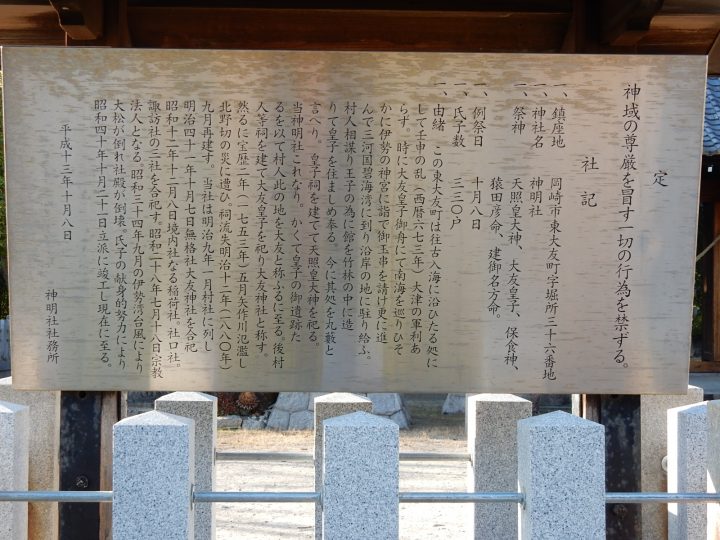 定
神域の尊厳を冒す一切の行為を禁ずる。
社記
一、鎮座地 岡崎市東大友町字堀所三十六番地
一、神社名 神明社
一、祭神 天照皇大神、大友皇子、保食神、
猿田彦命、建御名方命。
一、例祭日 十月八日
一、氏子数 二三〇戸
一、由緒 この東大友町は往古入海に沿ひたる処に
して壬申の乱(西暦六七三年)大津の軍利あ
らず。時に大友皇子御舟にて南海を巡りひそ
かに伊勢の神宮に詣で御玉串を請け更に進
んで三河国碧海湾に到り沿岸の地に駐り給ふ。
村人相謀り王子の為に館を竹林の中に造
りて皇子を住ましめ奉る。今に其処を丸藪と
言へり。皇子祠を建てて天照皇大神を祀る。
当神明社これなり。かくて皇子の御遺跡た
るを以て村人此の地を大友と称ふるに至る。後村
人等祠を建て大友皇子を祀り大友神社と称す。
然るに宝暦二年(一七五三年)五月矢作川氾濫し
北野切の災に遭ひ祠流失明治十二年(一八八〇年)
九月再建す。当社は明治九年一月村社に列し
明治四十一年十月七日無格社大友神社を合祀
昭和十二年十二月八日境内社なる稲荷社、社口社。
諏訪社の三社を合祀す。昭和二十八年七月十八日宗教
法人となる。昭和三十四年九月の伊勢湾台風により
大松が倒れ社殿が倒壊。氏子の献身的努力により
昭和四十年十月二十一日立派に竣工し現在に至る。
平成十三年十月八日
神明社社務所